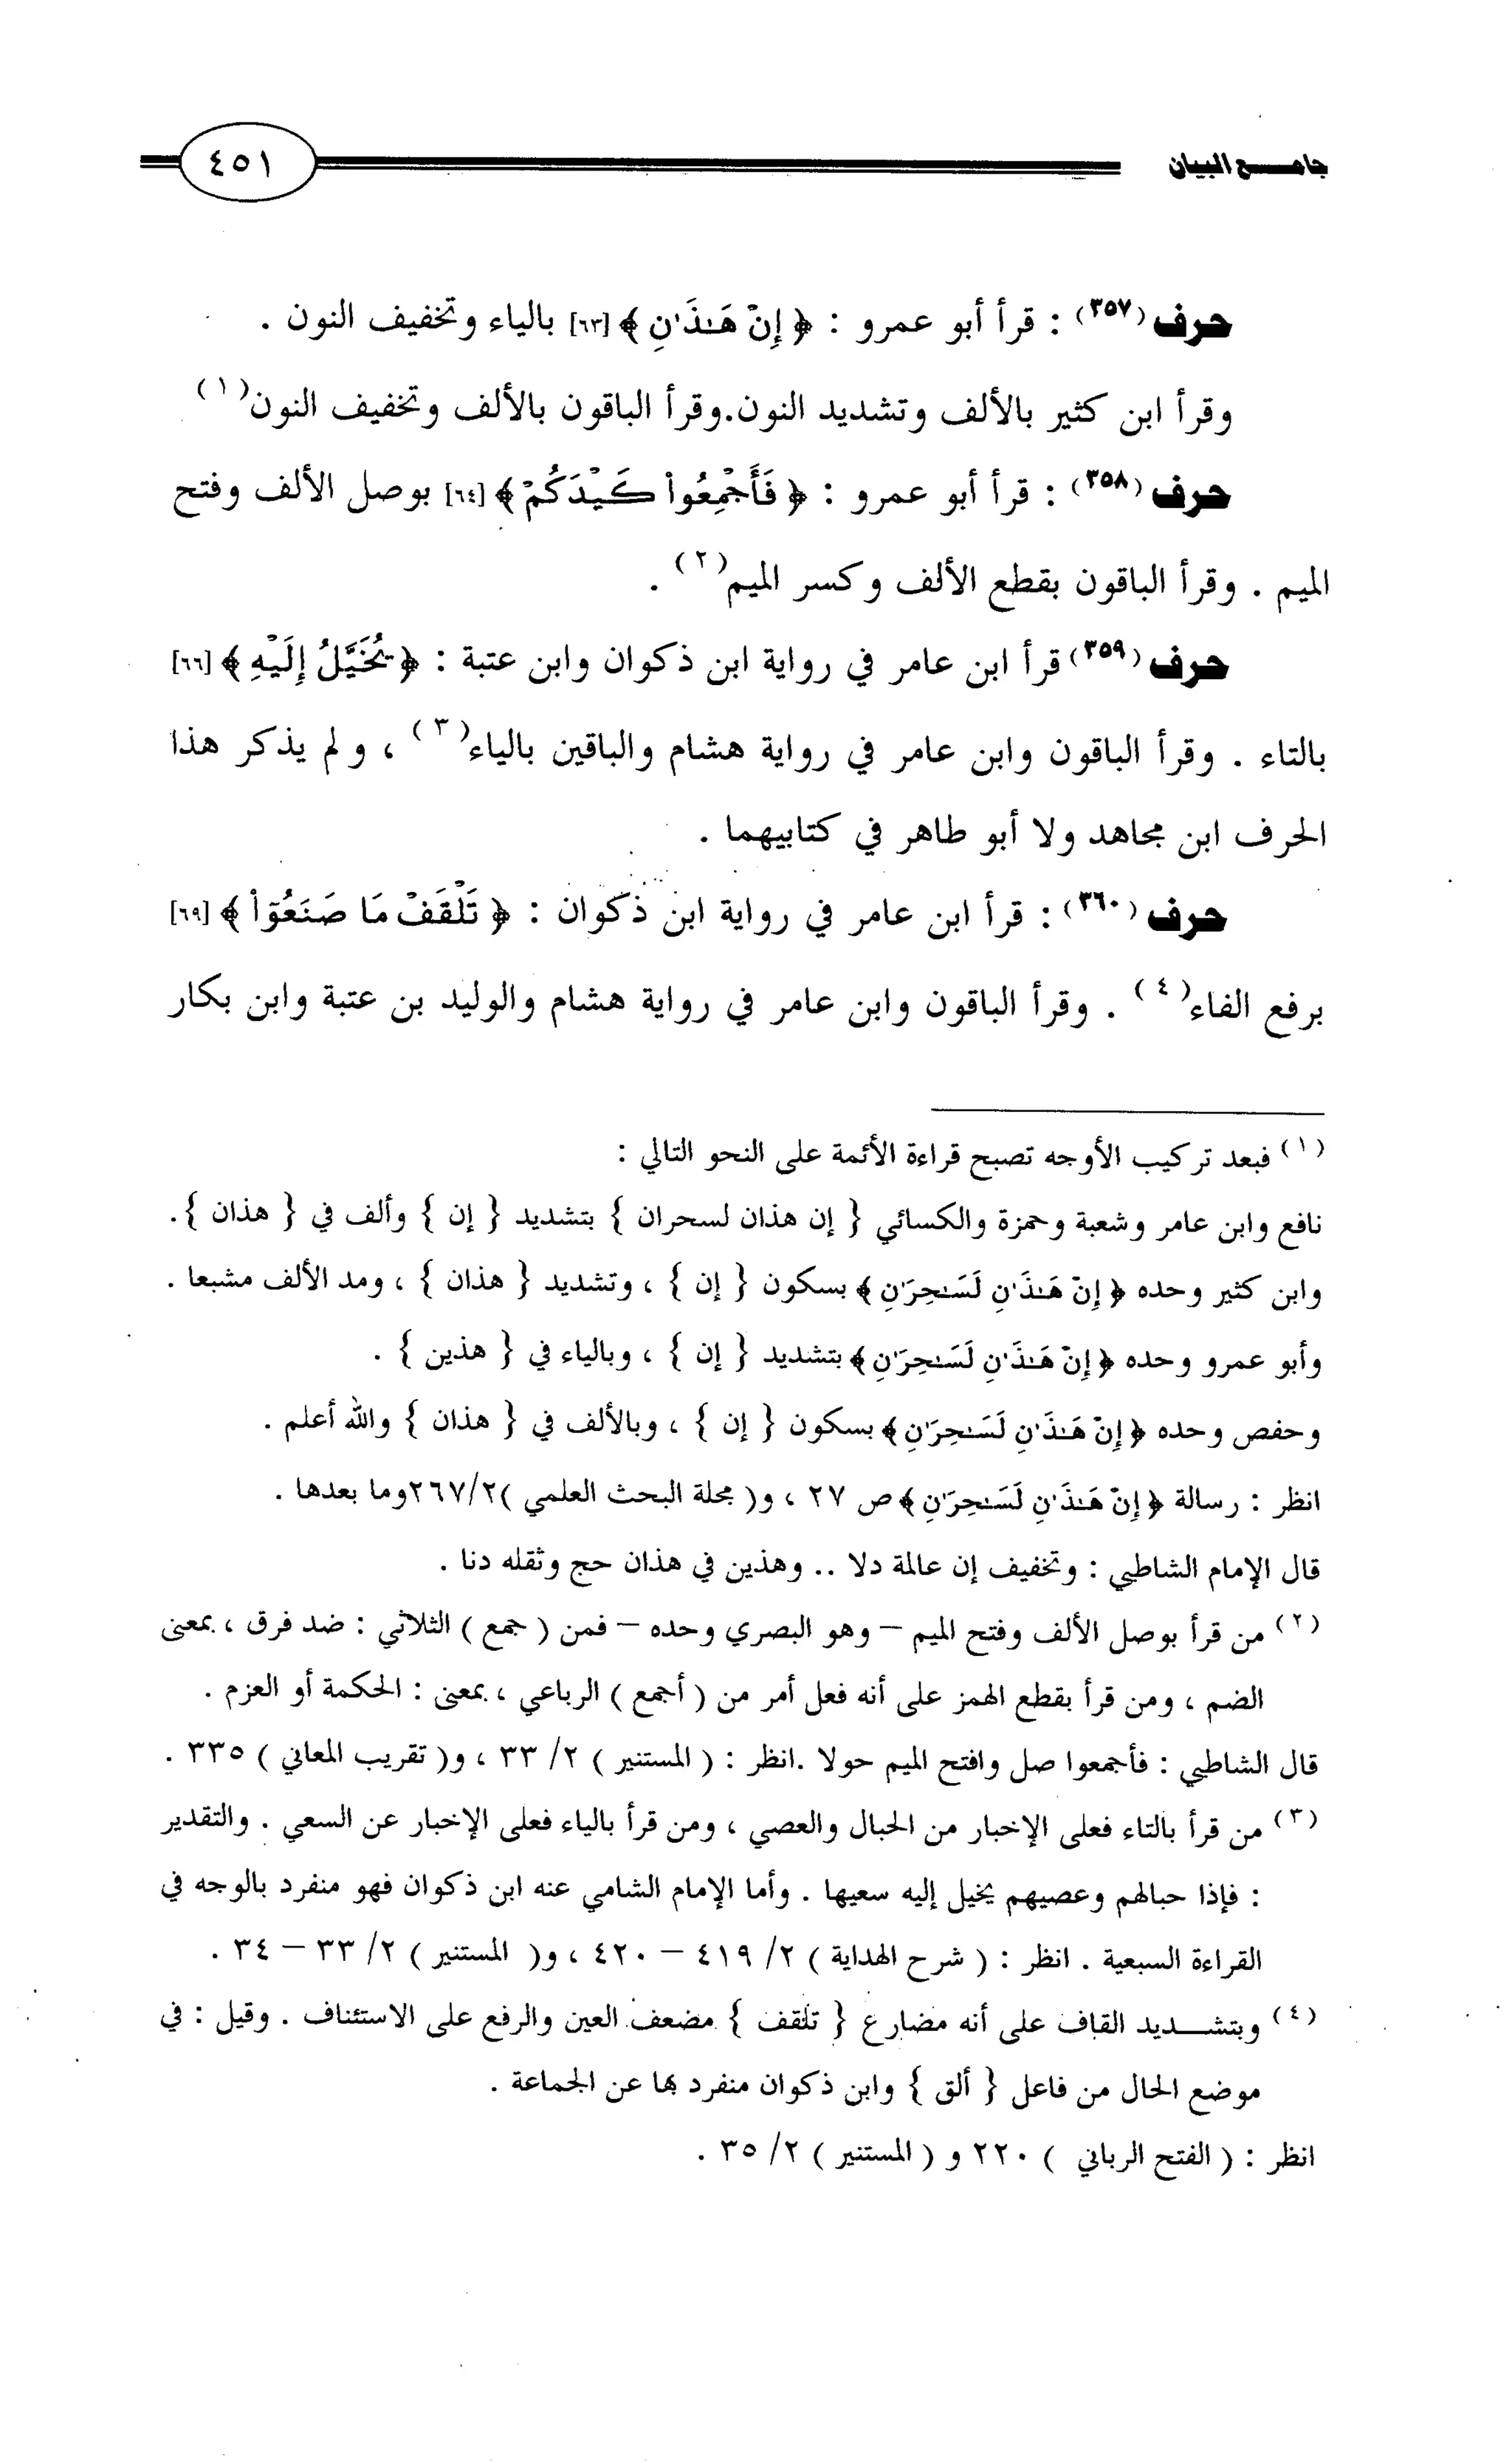 جامـــع البيان
٤٥١
حرف(٣٥٧) : قرأ أبو عمرو : ﴿ إِنْ هَـٰذَٰنِ ﴾ [٦٣] بالياء وتخفيف النون .
وقرأ ابن كثير بالألف وتشديد النون.وقرأ الباقون بالألف وتخفيف النون(١)
حرف(٣٥٨) : قرأ أبو عمرو : ﴿ فَأَجْمِعُوا۟ كَيْدَكُمْ ﴾ [٦٤] بوصل الألف وفتح
الميم . وقرأ الباقون بقطع الألف وكسر الميم(٢) .
حرف(٣٥٩) قرأ ابن عامر في رواية ابن ذكوان وابن عتبة : ﴿ يُخَيَّلُ إِلَيْهِ ﴾ [٦٦]
بالتاء . وقرأ الباقون وابن عامر في رواية هشام والباقين بالياء(٣) ، و لم يذكر هذا
الحرف ابن مجاهد ولا أبو طاهر في كتابيهما .
حرف(٣٦٠) : قرأ ابن عامر في رواية ابن ذكوان : ﴿ تَلْقَفْ مَا صَنَعُوٓا۟ ﴾ [٦٩]
برفع الفاء(٤) . وقرأ الباقون وابن عامر في رواية هشام والوليد بن عتبة وابن بكار
(١) فبعد تركيب الأوجه تصبح قراءة الأئمة على النحو التالي :
نافع وابن عامر وشعبة وحمزة والكسائي { إن هذان لسحران } بتشديد { إن } وألف في { هذان }.
وابن كثير وحده ﴿ إِنْ هَـٰذَٰنِ لَسَـٰحِرَٰنِ ﴾ بسكون { إن } ، وتشديد { هذان } ، ومد الألف مشبعا .
وأبو عمرو وحده ﴿ إِنْ هَـٰذَٰنِ لَسَـٰحِرَٰنِ ﴾ بتشديد { إن } ، وبالياء في { هذين } .
وحفص وحده ﴿ إِنْ هَـٰذَٰنِ لَسَـٰحِرَٰنِ ﴾ بسكون { إن } ، وبالألف في { هذان } والله أعلم .
انظر : رسالة ﴿ إِنْ هَـٰذَٰنِ لَسَـٰحِرَٰنِ ﴾ ص ٢٧ ، و( مجلة البحث العلمي )٢٦٧/٢وما بعدها .
قال الإمام الشاطبي : وتخفيف إن عالمة دلا .. وهذين في هذان حج وثقله دنا .
(٢) من قرأ بوصل الألف وفتح الميم – وهو البصري وحده – فمن ( جمع ) الثلاثي : ضد فرق ، بمعنى
الضم ، ومن قرأ بقطع الهمز على أنه فعل أمر من ( أجمع ) الرباعي ، بمعنى : الحكمة أو العزم .
قال الشاطبي : فأجمعوا صل وافتح الميم حولا .انظر : ( المستنير ) ٢/ ٣٣ ، و( تقريب المعاني ) ٣٣٥ .
(٣) من قرأ بالتاء فعلى الإخبار من الحبال والعصي ، ومن قرأ بالياء فعلى الإخبار عن السعي . والتقدير
: فإذا حبالهم وعصيهم يخيل إليه سعيها . وأما الإمام الشامي عنه ابن ذكوان فهو منفرد بالوجه في
القراءة السبعية . انظر : ( شرح الهداية ) ٢/ ٤١٩ – ٤٢٠ ، و( المستنير ) ٢/ ٣٣ – ٣٤ .
(٤) وبتشـــديد القاف على أنه مضارع { تلقف } مضعف العين والرفع على الاستئناف . وقيل : في
موضع الحال من فاعل { ألق } وابن ذكوان منفرد بها عن الجماعة .
انظر : ( الفتح الرباني ) ٢٢٠ و ( المستنير ) ٢/ ٣٥ .